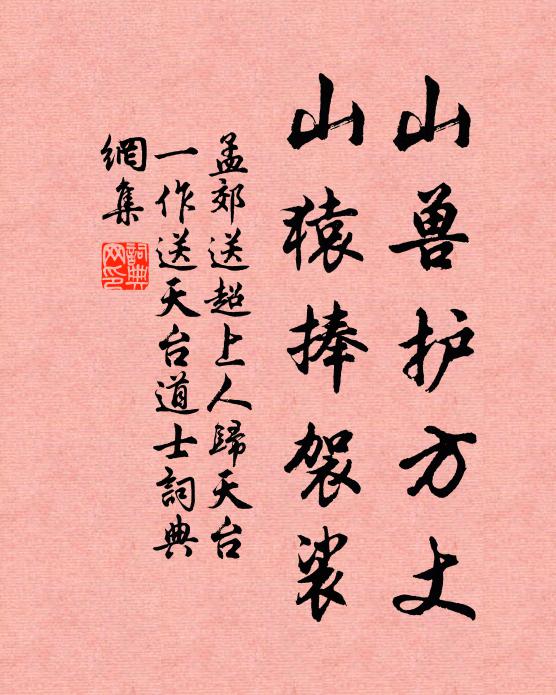 山兽护方丈
山猿捧袈裟
孟郊送超上人歸天台
一作送天台道士詞典
網集
詞典
网印